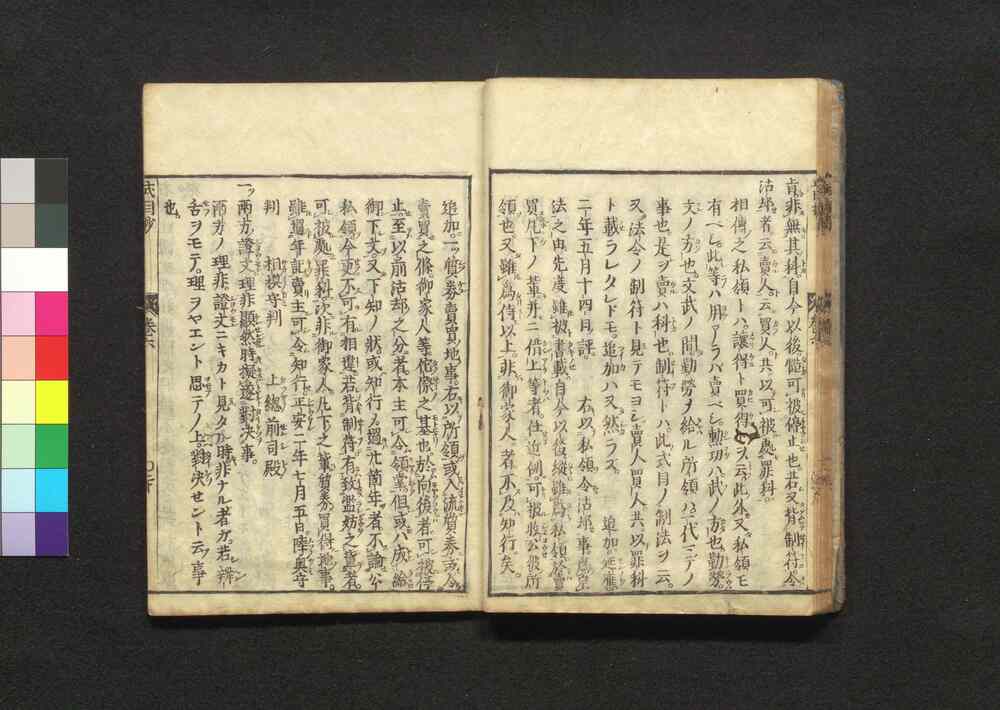 肯非無其科自今以後慥可被停止也若又背制符令
沽却者云賣人云買人共以可被處罪科
相傳之私領トハ讓得ト買得ヲ云此外又私領モ
有ベシ此等ハ用アラバ賣ベシ勲功ハ武ノ方也勤勞
文ノ方也文武ノ間勤勞ヲ給ル所領ハ一代二テノ
事也是ヲ賣ハ科也制符トハ此式目ノ制法ヲ云
又法令ノ制符ト見テモヨシ賣人買人共以罪科
ト載ラレタレドモ追加ハ又然ラズ 追加延應
二年五月十四日評 右以私領令沽却事爲定
法之由先度雖被書載自今以後縱雖爲私領於賣
買凡下ノ輩并ニ借上等者任近例可被收公彼所
領也又雖爲侍以上非御家人者不及知行矣
追加一ツ質券賣買地事右以所領或入流質券或令
賣買之條御家人等侘傺之基也於向後者可被停
止至以前沽却之分者本主可令領掌但或ハ成給
御下文又下知ノ狀或知行ノ過廿箇年者不論公
私領今更不可有相違若背制符有致濫妨之輩者
可被處罪科次非御家人凡下之輩質券買得地事
雖過年記賣主可令知行正安二年七月五日陸奥守
判 相模守判 上總前司殿
一ツ兩方證文理非顯然時擬遂對決事
兩方ノ理非證文ニキカト見タル時非ナル者ガ若辨
舌ヲモテ理ヲヤエント思テノ上對决セント云事
也
式目抄 巻六